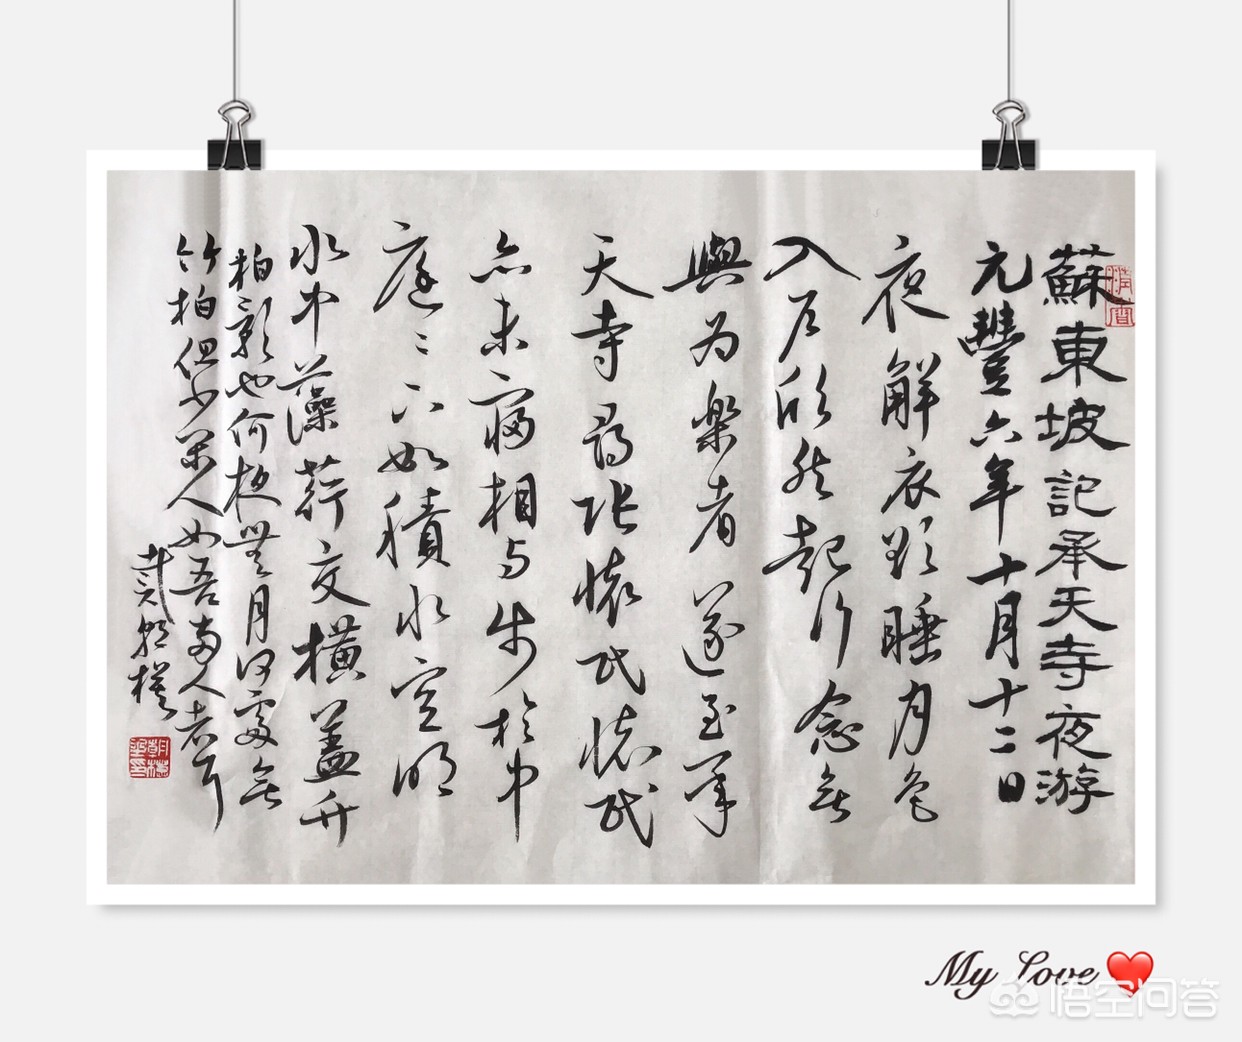 蘇東坡記承天寺夜游
元豐六年十月十二日
夜解衣欲睡月色
入户欣然起行念無
與为楽者遂至承
天寺尋张懷民懷民
亦未寢相与步於中
庭〻下如積水空明
水中藻荇交橫蓋竹
柏影也何夜無月何處無
竹柏但少閑人如吾两人者耳
My Love
悟空问答